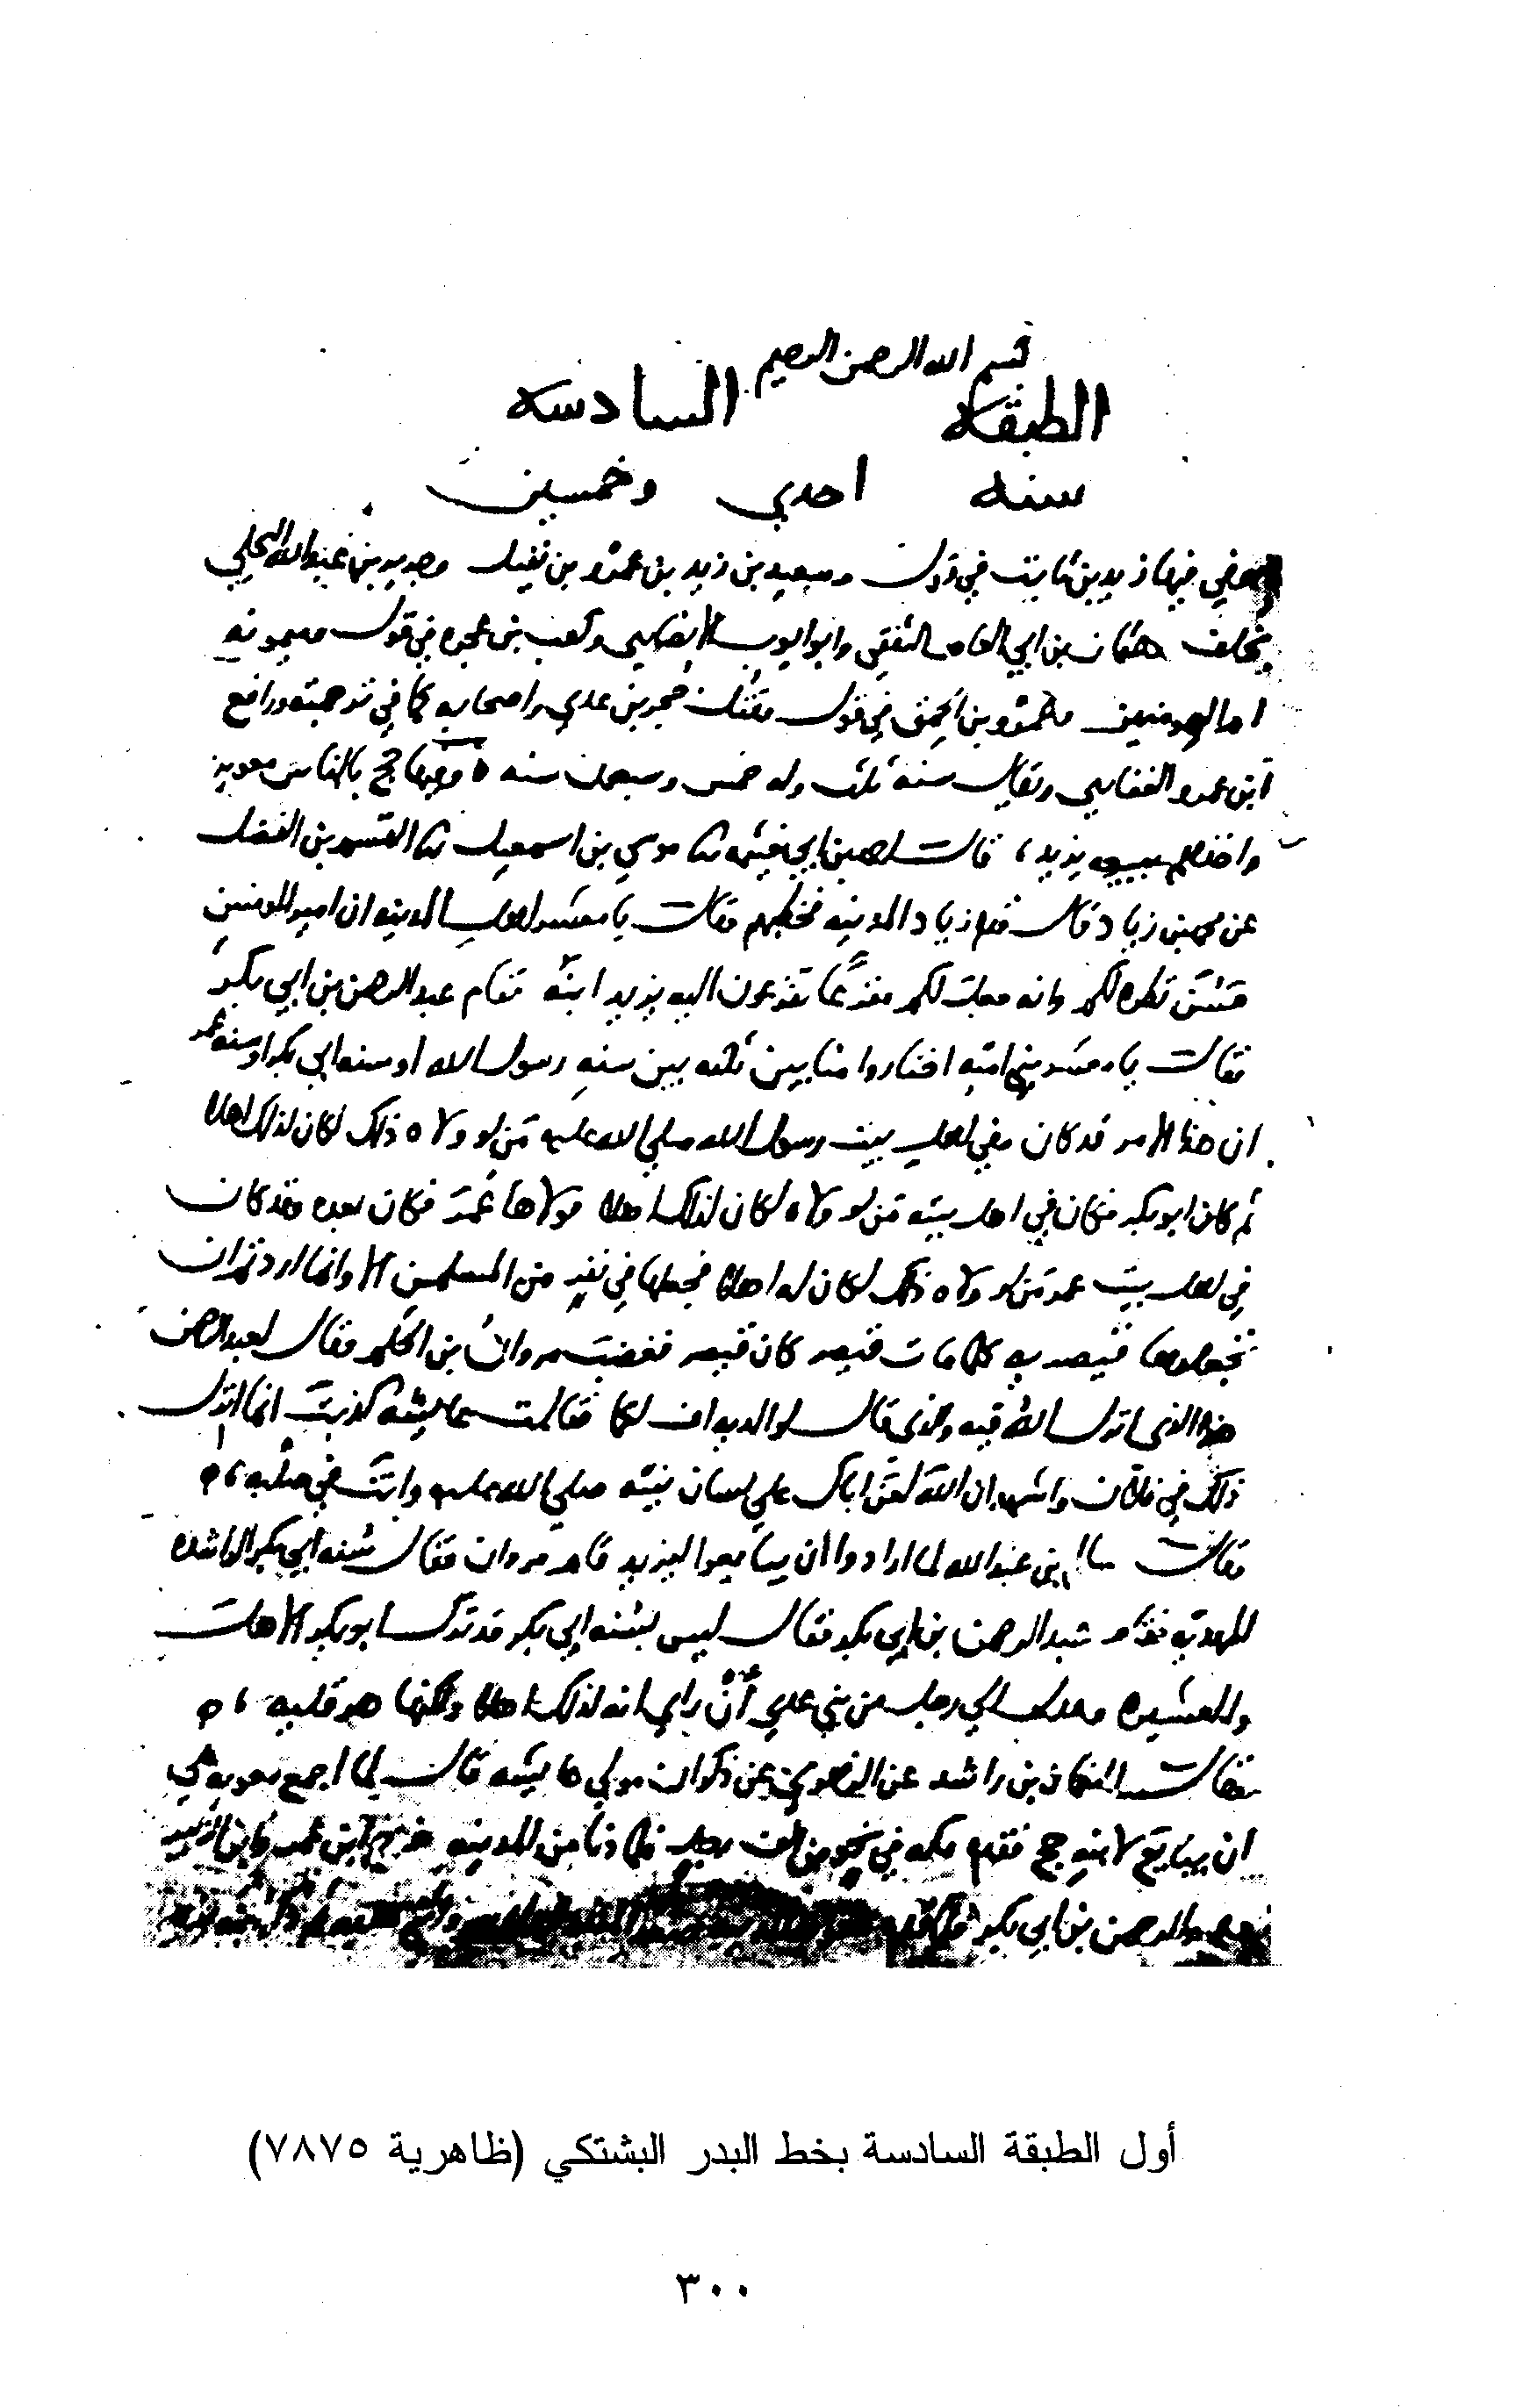 بسم الله الرحمن الرحيم
الطبقة السادسه
سنه احدي وخمسين
توفي فيها زيد بن ثابت في قول وسعيد بن زيد بن عمرو بن نفيل وجرير بن عبدالله البجلي
بخلف عثمان بن ابي العاص الثقفي وابو ايوب الانصاري وكعب بن عجره في قول ميمونه
ام المومنين وعمرو بن الحمق في قول وقتل حجر بن عدي واصحابه كما في ترجمته ورافع
ابن عمرو الغفاري ويقال سنة ثلث وله خمس وسبعون سنه وفيها حج بالناس معويه
واخذهم ببيعة يزيد، قال احمد بن ابي خيثمه ثنا موسي بن اسمعيل ثنا القسم بن الفضل
عن محمد بن زياد قال قدم زياد المدينه فخطبهم وقال يا معشر اهل المدينه ان امير المومنين
حسن نظره لكم وانه جعل لكم مفزعًا تفزعون اليه يزيد ابنه فقام عبد الرحمن بن ابي بكر
فقال يا معشر بني اميه اختاروا منا بين ثلثه بين سنه رسول الله او سنه ابي بكر او سنه عمر
ان هذا الامر قد كان وفي اهل بيت رسول الله صلي الله عليه من لو ولاه ذلك لكان لذلك اهلا
ثم كان ابو بكر فكان في اهل بيته من لو ولاه لكان لذلك اهلا فولاها عمر فكان بعده وقد كان
في اهل بيت عمر من لو ولاه ذلك لكان له اهلا فجعلها في نفر من المسلمين الا وانما اردتم ان
تجعلوها قيصريه كلما مات قيصر كان قيصر فغضب مروان بن الحكم وقال لعبد الرحمن
هذا الذي انزل الله فيه والذي قال لوالديه اف لكما فقالت عايشه كذبت انما انزل
ذلك في فلان واشهد ان الله لعن اباك علي لسان نبيه صلي الله عليه وانت في صلبه ،ه
وقال سالم بن عبدالله لما ارادوا ان يبايعوا ليزيد قام مروان فقال سنه ابي بكر الراشده
المهديه فقام عبد الرحمن بن ابي بكر فقال ليس بسنه ابي بكر قد ترك ابو بكر الاهل
والعشيره وعدل الي رجل من بني عدي أنْ راي انه لذلك اهلا ولكنها هرقليه ،ه
وقال النعمان بن راشد عن الزهري عن ذكوان مولي عايشه قال لما اجمع معويه علي
ان يبايع لابنه حج فقدم مكه في نحو من الف رجل فلما دنا من المدينه خرج ابن عمر وابن الزبير
وعبد الرحمن بن ابي بكر فلما قدم
أول الطبقة السادسة بخط البدر البشتكي (ظاهرية ٧٨٧٥)
٣٠٠